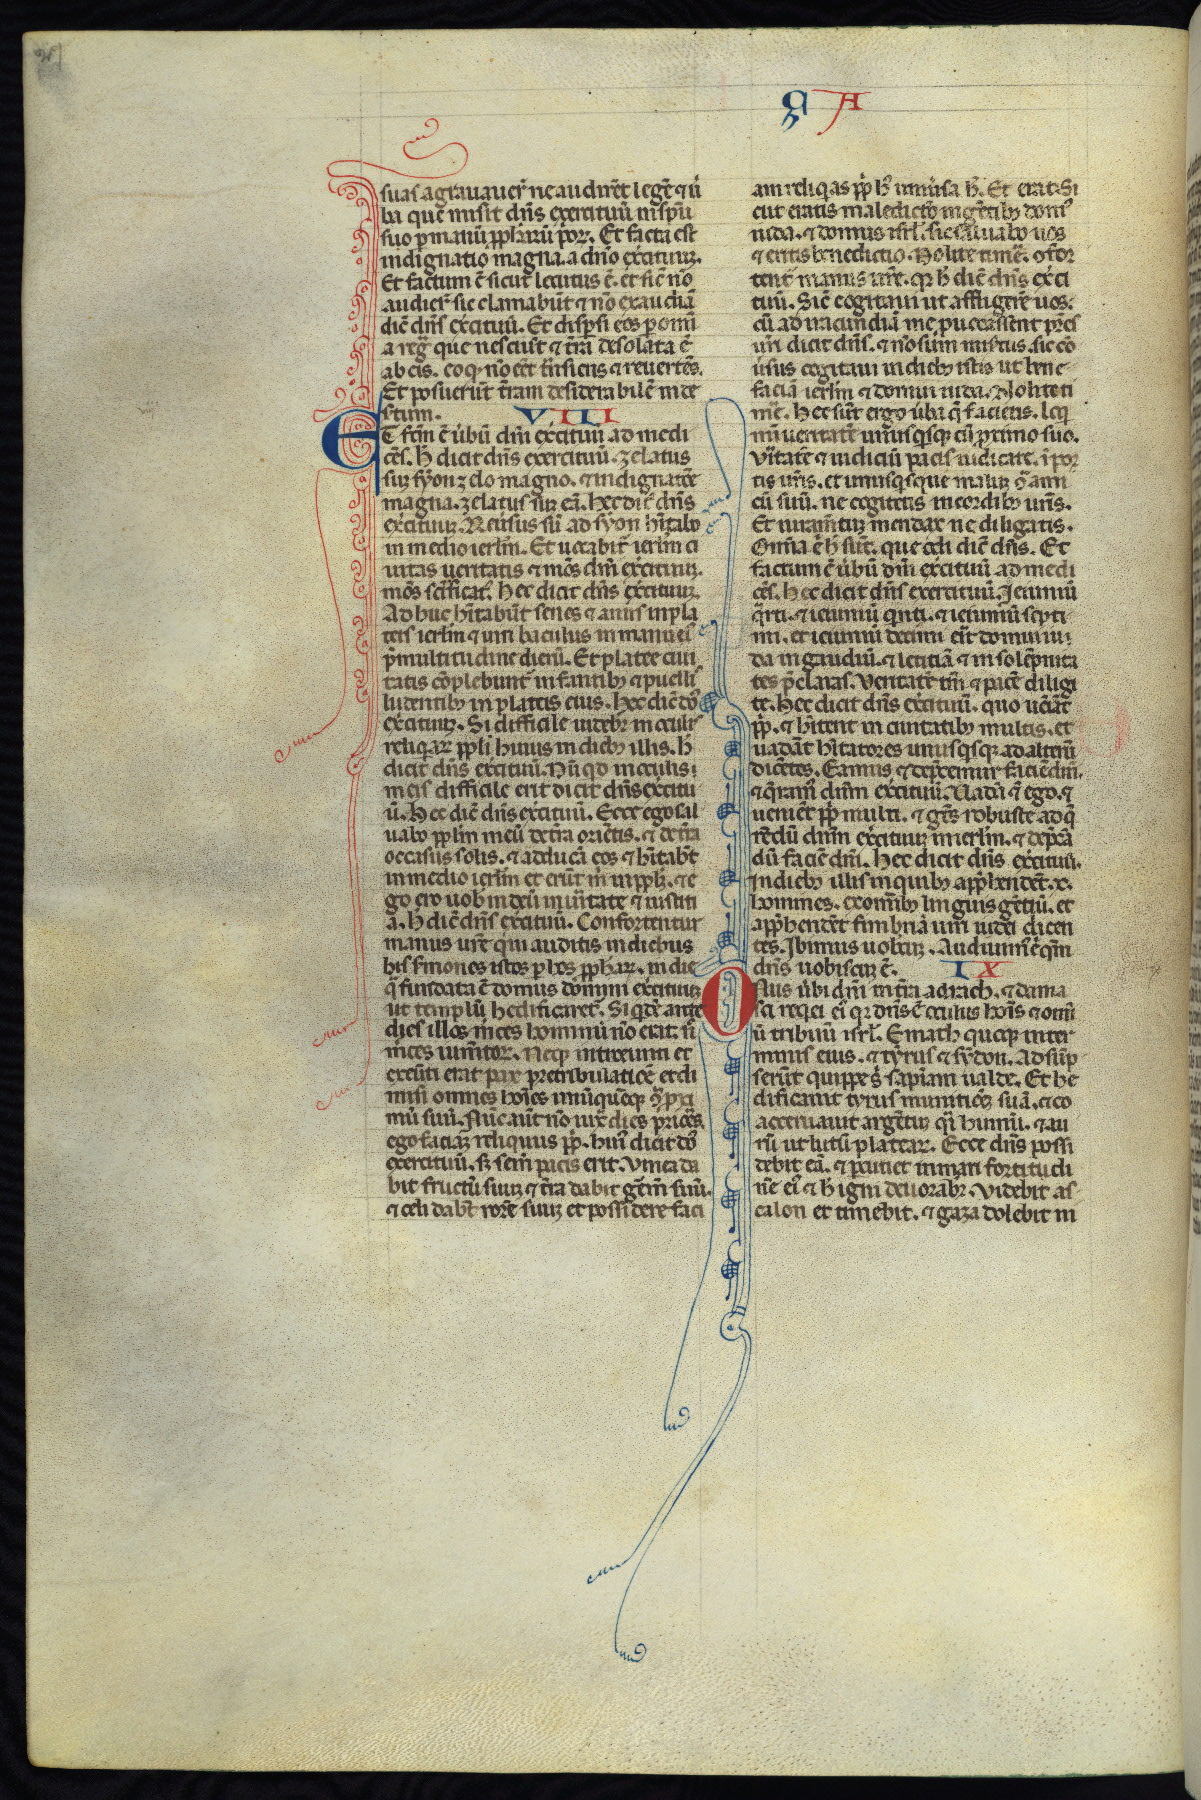 ꝯ A
suas agravaver̄ ne audirēt legē ⁊ ū
ba que misit dn̄s exercituū ī sp̄u
suo p manū ꝓph̄arū p̄or. Et facta est
indignatio magna. a dn̄o ex̄cituū.
Et factum ē sicut locutus ē. et sic nō
audier̄ sic clamabūt ⁊ nō exaudiā
dic̄ dn̄s ex̄cituū. Et disꝑsi eos ꝑ om̄ia
regna que nesciūt ⁊ t̄ra desolata ē
ab eis. eo ꝙ nō eēt t̄nsiens ⁊ revertēs.
Et posuerūt t̄ram desiderabilē in de
sertum. VIII
ET fc̄m ē ūbū dn̄i ex̄cituū ad me di
cēs. H̄ dicit dn̄s exercituū. zelatus
suȝ syon zelo magno. ⁊ indignatōe
magna. zelatus suȝ eā. Hec dic̄ dn̄s
ex̄cituū. Reūsus sū ad syon h̄itabo
in medio ierlm̄. Et vocabit̄ ierlm̄ ci
uitas veritatis ⁊ mōs dn̄i ex̄cituū.
mōs sc̄ificat̄. Hec dicit dn̄s ex̄cituū.
Ad huc h̄itabūt senes ⁊ anus in pla
teis ierlm̄ ⁊ uiri baculus in manu ei̾
p̄ multitudine dierū. Et platee ciui
tatis cōplebunt̄ infantibȝ ⁊ puellis
ludentibȝ in plateis eius. Hec dic̄ dn̄s
ex̄cituū. Si difficile videbr̄ in oculis
reliqiar̄ ppl̄i huius in diebȝ illis. h̄
dicit dn̄s ex̄cituū. Nūqd̄ in oculis
meis difficile erit dicit dn̄s ex̄citu
ū. Hec dic̄ dn̄s ex̄cituū. Ecce ego sal
uabo ppl̄m meū de t̄ra oriētis. ⁊ de t̄ra
occasus solis. ⁊ adducā eos ⁊ h̄itabt̄
in medio ierlm̄ et erūt m̄ in ppl̄m. ⁊ e
go ero uob̄ in deū in uītate ⁊ iustiti
a. H̄ dic̄ dn̄s ex̄cituū. Confortentur
manus ur̄e qui auditis in diebus
his sermones istos ꝑ hos ꝓph̄aȝ. in die
qͣ fundata ē domus domini ex̄cituū
ut templū hedificaret̄. Siqdē ante
dies illos m̄ces hominū nō erat. n̄
m̄ces iumētor. Neqȝ introeunti et
exeūti erat pax p̄ tribulatiōe. et di
misi omnes hoīes unūquēqȝ cōt̄ ꝓxi
mū suū. Nūc aūt nō iux̄ dies p̄ores
ego faciaȝ reliquiis pp̄. hui̾ dicit dn̄s
exercituū. sȝ sem̄ pacis erit. Vinea da
bit fructū suū ⁊ t̄ra dabit gēm̄ suū.
⁊ celi dabt̄ rorē suū et possidere faci
am reliqias pp̄ h̄ uniūsa h̄. Et erat. Si
cut eratis maledictō in gētibȝ dom̾
iuda. ⁊ domus isrl̄. sic salvabo vos
⁊ eritis benedictio. Nolite timē. cōfor
tent̄ manus ur̄e. qr̄ h̄ dic̄ dn̄s ex̄ci
tuū. Sic̄ cogitaui ut affligerē vos.
cū ad iracundiā me puocassent p̄res
ur̄i dicit dn̄s. ⁊ nō sum misertus. sic cō
ūsus cogitaui in diebȝ istis ut bene
faciā ierlm̄ ⁊ domui iuda. Nolite ti
mē. Hec sūt ergo ūba q̄ facietis. loq̄
mī veritatē unusqisqȝ cū ꝓximo suo.
Vītatē ⁊ iudiciū pacis iudicate. ī por
tis ur̄is. et unusqisque maluȝ cōt̄ ami
cū suū. ne cogitetis in cordibȝ ur̄is.
Et iuramtūȝ mendax ne diligatis.
Omīa ē h̄ sūt. que odi dic̄ dn̄s. Et
factum ē ūbū dn̄i ex̄cituū ad me di
cēs. Hec dicit dn̄s exercituū. Ieiuniū
qͣrti. ⁊ ieiuniū qinti. ⁊ ieiuniū septi
mi. et ieiuniū decimi er̄it domui iu
da in gaudiū. ⁊ letitiā ⁊ in solēpnita
tes p̄claras. Veritatē tm̄ ⁊ pacē diligi
te. Hec dicit dn̄s ex̄cituū. quo veniāt
pp̄. ⁊ h̄itent in ciuitatibȝ multis. et
uadāt h̄itatores unusqisqȝ ad alterū
dicētes. Eamus ⁊ dep̄cemur faciē dn̄i.
⁊ qͣram̾ dn̄m ex̄cituū. Vadā ē ego. ⁊
uenient pp̄ multi. ⁊ gētes robuste ad q̄
rēdū dn̄m ex̄cituū in ierlm̄. ⁊ dep̄cā
dū faciē dn̄i. Hec dicit dn̄s ex̄cituū.
In diebȝ illis in quibȝ app̄hendēt .x.
homines. ex omībȝ linguis gētiū. et
app̄hendēt fimbriā uiri iudei dicen
tes. Ibimus uobcuȝ. Audiuim̾ ē qm̄
dn̄s uobiscuȝ ē. IX
ONus ūbi dn̄i in t̄ra adrach. ⁊ dama
sci reqei ei̾ qr dn̄s ē oculus hoīs ⁊ omī
ū tribuū isrl̄. Emath quoqȝ inter
minis eius. ⁊ tyrus ⁊ sydon. Adsūp
serūt quippe s̄ sapiam valde. Et he
dificauit tyrus munitiōeȝ suā. ⁊ co
aceruauit argētuȝ qͣi humū. ⁊ au
rū ut lutū plateaꝝ. Ecce dn̄s possi
debit eā. ⁊ ꝑcutiet in mari fortitudi
nē ei̾ ⁊ h̄ igni deuorabr̄. Videbit as
calon et timebit. ⁊ gaza dolebit ni